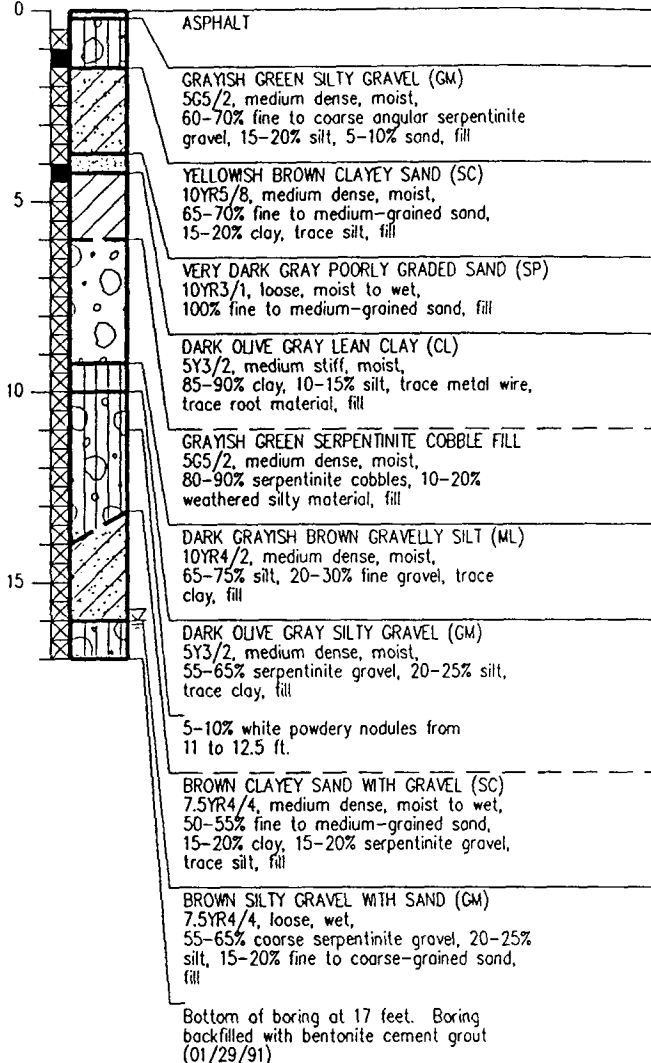 0
ASPHALT
GRAYISH GREEN SILTY GRAVEL (GM)
5G5/2, medium dense, moist,
60-70% fine to coarse angular serpentinite
gravel, 15-20% silt, 5-10% sand, fill
YELLOWISH BROWN CLAYEY SAND (SC)
10YR5/8, medium dense, moist,
65-70% fine to medium-grained sand,
15-20% clay, trace silt, fill
5
VERY DARK GRAY POORLY GRADED SAND (SP)
10YR3/1, loose, moist to wet,
100% fine to medium-grained sand, fill
DARK OLIVE GRAY LEAN CLAY (CL)
5Y3/2, medium stiff, moist,
85-90% clay, 10-15% silt, trace metal wire,
trace root material, fill
10
GRAYISH GREEN SERPENTINITE COBBLE FILL
5G5/2, medium dense, moist,
80-90% serpentinite cobbles, 10-20%
weathered silty material, fill
DARK GRAYISH BROWN GRAVELLY SILT (ML)
10YR4/2, medium dense, moist,
65-75% silt, 20-30% fine gravel, trace
clay, fill
15
DARK OLIVE GRAY SILTY GRAVEL (GM)
5Y3/2, medium dense, moist,
55-65% serpentinite gravel, 20-25% silt,
trace clay, fill
5-10% white powdery nodules from
11 to 12.5 ft.
BROWN CLAYEY SAND WITH GRAVEL (SC)
7.5YR4/4, medium dense, moist to wet,
50-55% fine to medium-grained sand,
15-20% clay, 15-20% serpentinite gravel,
trace silt, fill
BROWN SILTY GRAVEL WITH SAND (GM)
7.5YR4/4, loose, wet,
55-65% coarse serpentinite gravel, 20-25%
silt, 15-20% fine to coarse-grained sand,
fill
Bottom of boring at 17 feet. Boring
backfilled with bentonite cement grout
(01/29/91)